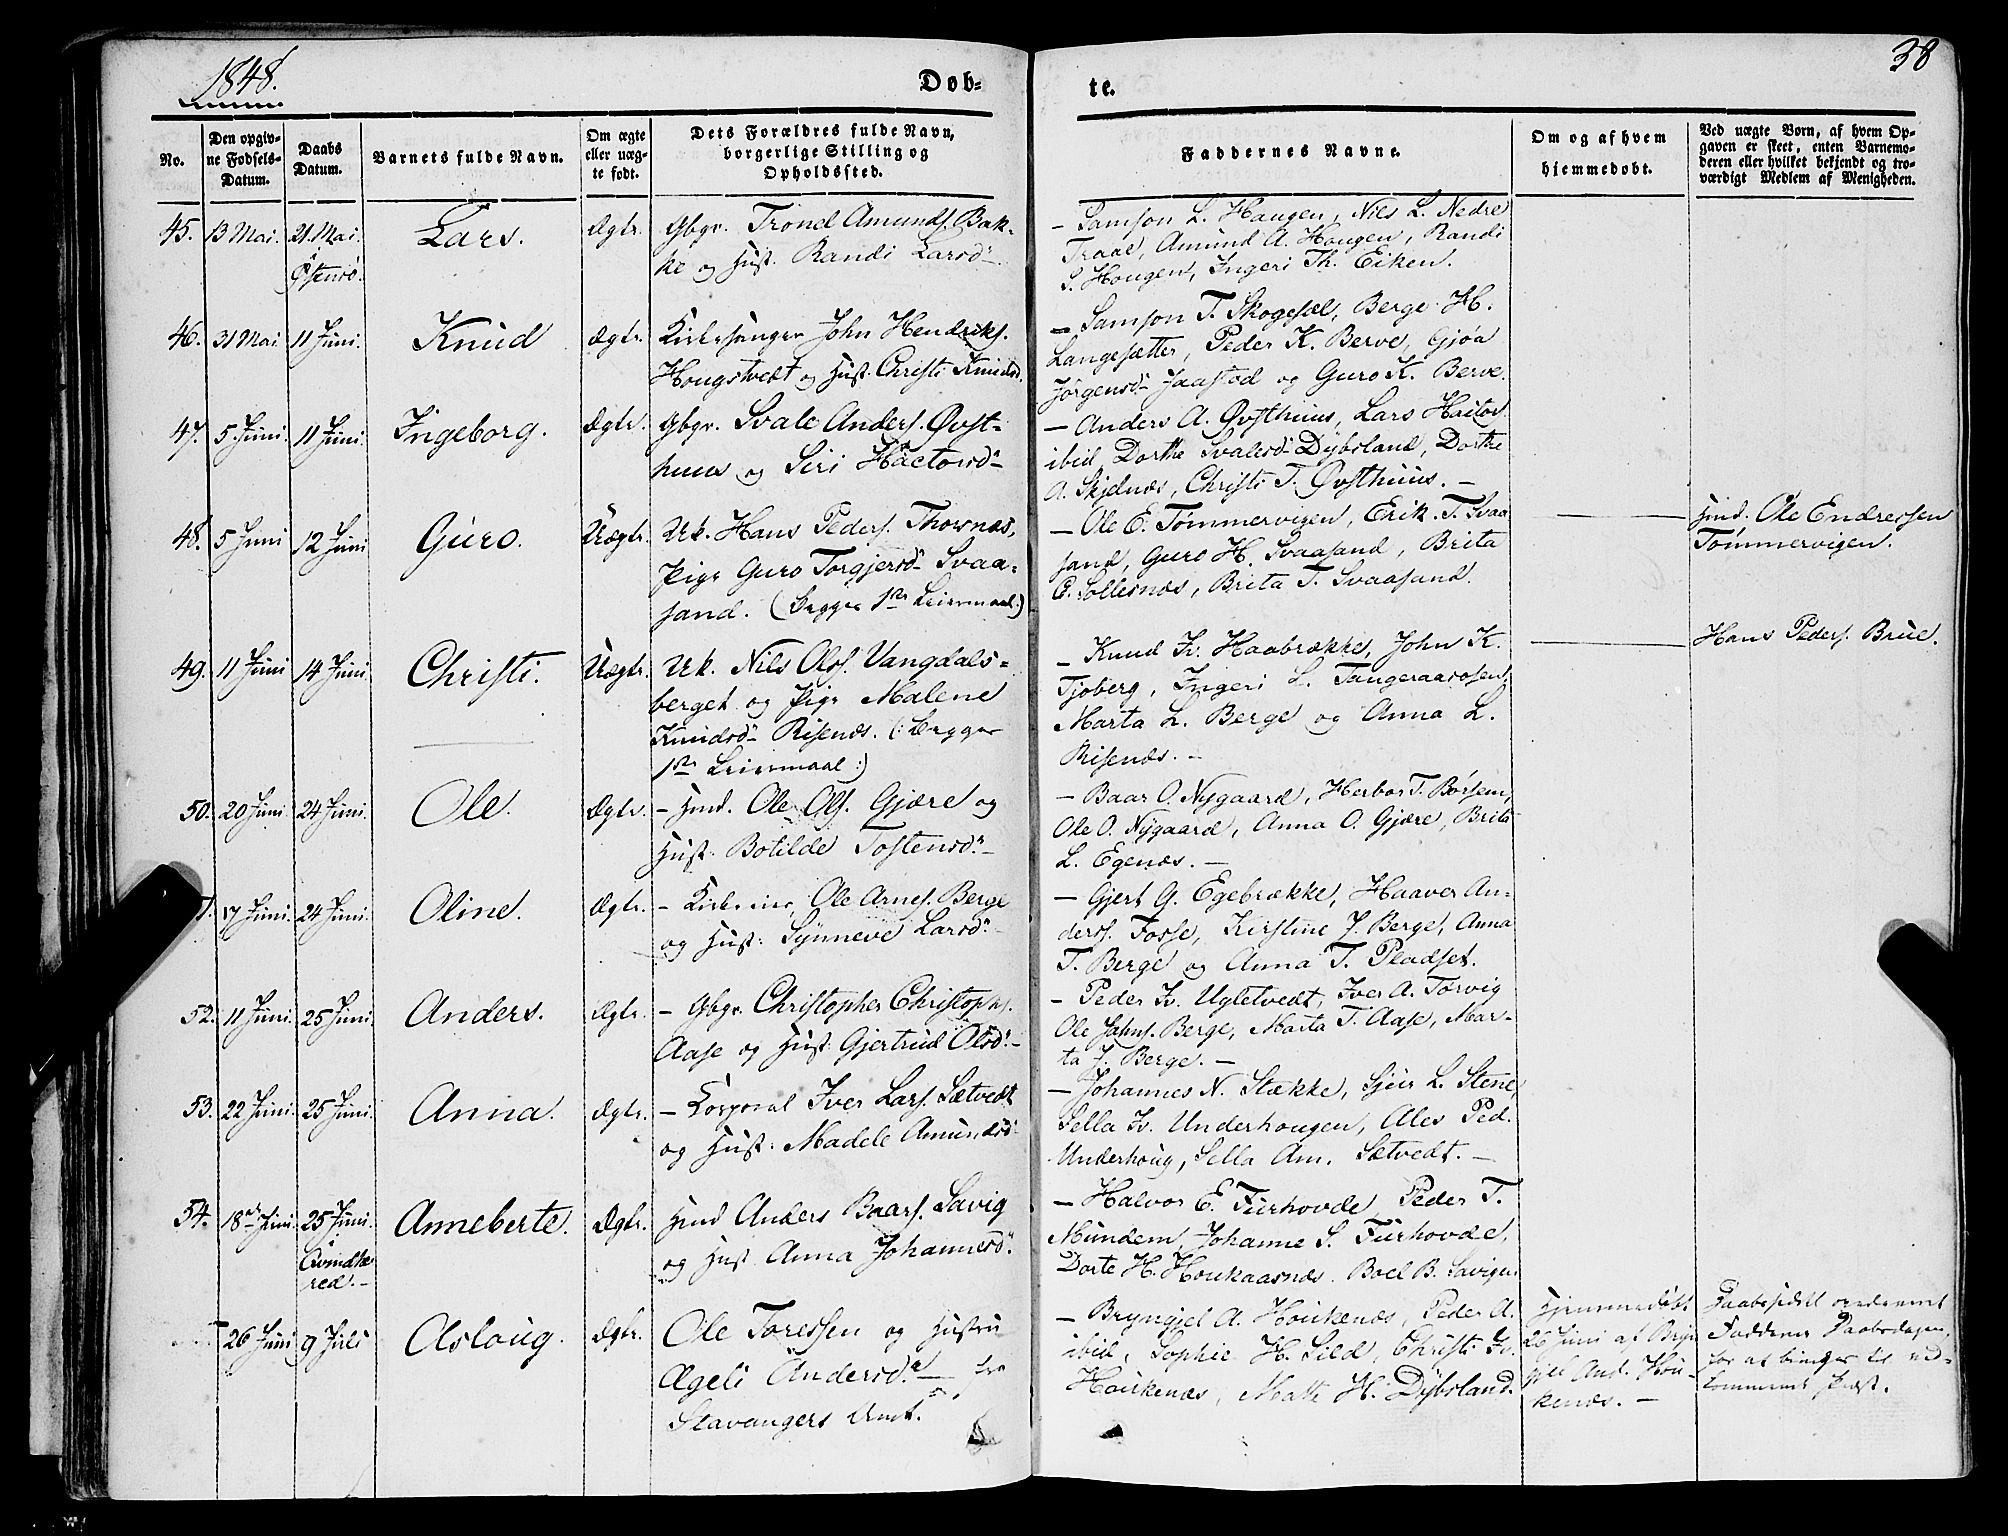 1848.
Døb-
te.
38
No.
Den opgiv-
ne Fødsels-
Datum.
Daabs
Datum.
Barnets fulde Navn.
Om ægte
eller uæg-
te født.
Dets Forældres fulde Navn,
borgerlige Stilling og
Opholdssted.
Faddernes Navne.
Om og af hvem
hjemmedøbt.
Ved uægte Børn, af hvem Op-
gaven er skeet, enten Barnemo-
deren eller hvilket bekjendt og tro-
værdigt Medlem af Menigheden.
45. 13 Mai. 21. Mai Østensø. Lars. Ægte.
Gbgr. Trond Amunds. Bak-
ke og Hust. Randi Larsd.
- Samson L. Haugen, Nils L. Nedre
Traae, Amund A. Hougen, Randi
S. Hougen, Ingeri Th. Eiken.
46. 31 Mai 11 Juni. Knud Ægte.
Kirkesanger John Hendriks.
Hougstvedt og Hust. Christi Knudsd.
- Samson T. Skogesæl, Berge H.
Langesætter, Peder K. Berve, Gjøa
Jørgensd. Jaastad og Guro K. Berve.
47. 5 Juni. 11 Juni. Ingeborg. Ægte.
Gbgr. Svale Anders. Øvst-
huus og Siri Hactorsd.
- Anders A. Øvsthuus, Lars Haitor
ibid, Dorthe Svalesd. Dybsland, Dorthe
A. Skjelnæs, Christi T. Øvsthuus. -
48. 5 Juni 12 Juni Guro. Uægte.
Uk. Hans Peders. Thorsnæs,
Pige Guro Torgjersd. Svaa-
sand. (Begges 1ste Leiermaal.)
- Ole E. Tømmervigen, Erik T. Svaa
sand, Guro H. Svaasand, Brita
E. Sollesnæs, Brita T. Svaasand.
Hmd. Ole Endressen
Tømmervigen.
49. 11 Juni 14 Juni. Christi. Uægte.
Uk. Nils Ols. Vangdals-
berget og Pige Malene
Knudsd. Risenæs. (: Begges
1ste Leiermaal :)
- Knud Iv. Haabrække, John K.
Tjoberg, Ingeri L. Tangeraasosen,
Marta L. Berge og Anna L.
Risenæs. -
Hans Peders. Brue.
50. 20 Juni 24 Juni. Ole. Ægte.
- Hmd. Ole Ols. Gjære og
Hust. Botilde Tostensd. -
- Baar O. Nygaard, Herbor T. Børsem,
Ole O. Nygaard, Anna O. Gjære, Brita
L. Egenæs. -
17 Juni. 24 Juni. Oline. Ægte.
- Ole Arnes. Berge
og Hust: Synneve Larsd.
- Gjert G. Egebrække, Haaver An-
derss. Fosse, Kirstine J. Berge, Anna
T. Berge og Anna T. Pladset.
52. 11 Juni. 25 Juni. Anders. Ægte.
- Gbgr. Christopher Christophs.
Aase og Hust. Gjertrud Olsd. -
- Peder Iv. Ugletvedt, Iver A. Tørvig
Ole Johns. Berge, Marta T. Aase, Mar-
ta J. Berge. -
53. 22 Juni. 25 Juni. Anna. Ægte.
- Korporal Iver Lars. Sætvedt
og Hust: Madele Amundsd.
- Johannes N. Stække, Sjeir L. Stene,
Sella Iv. Underhougen, Ales Ped.
Underhoug, Sella Am. Sætvedt. -
54. 18de Juni. 25 Juni. Anneberte. Ægte.
Hmd Anders Baars. Savig
og Hust Anna Johannesd.
- Halvor E. Furhovde, Peder T.
Mundem, Johanne S. Furhovde,
Dorte H. Houkaasnæs. Boel B. Savigen
26 Juni 9 Juli Asloug. Ægte.
Ole Toressen og Hustru
Ægeli Andersd. - fra
Stavangers Amt.
- Bryngjel A. Houkenæs, Peder A.
ibid, Sophie H. Sild, Christi Iv.
Houkenæs, Matte H. Dybsland.
Hjemmedøbt
26 Juni af Bryn
gjel And. Hou-
kenæs. -
Faddener Daabsdagen,
for at bringes til ved-
kommende Præst.